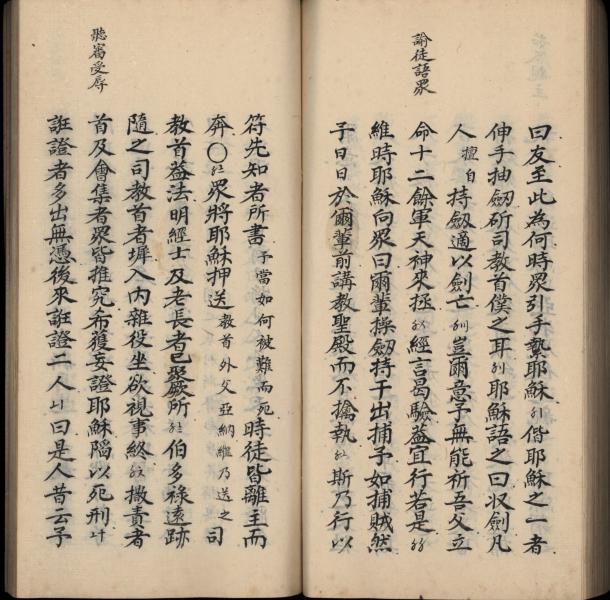 諭徒語眾
曰友至此為何時眾引手縶耶穌偕耶穌之一者
伸手抽劒斫司教首僕之耳耶穌語之曰収劍凡
人擅自持劒適以劍亡豈爾意予無能祈吾父立
命十二餘軍天神來拯經言曷驗葢宜行若是
維時耶穌向眾曰爾輩操劒持干出捕予如捕賊然
予日日於爾輩前講教聖殿而不擒執斯乃行以
聽審受辱
符先知者所書予當如何被難而死時徒皆離主而
奔〇眾將耶穌押送教首外父亞納維乃送之司
教首葢法明經士及老長者已聚厥所伯多祿遠跡
隨之司教首者墀入内雜役坐欲視事終撒責者
首及會集者眾皆推究希獲妄證耶穌陷以死刑
誑證者多出無憑後來誑證二人曰是人昔云予